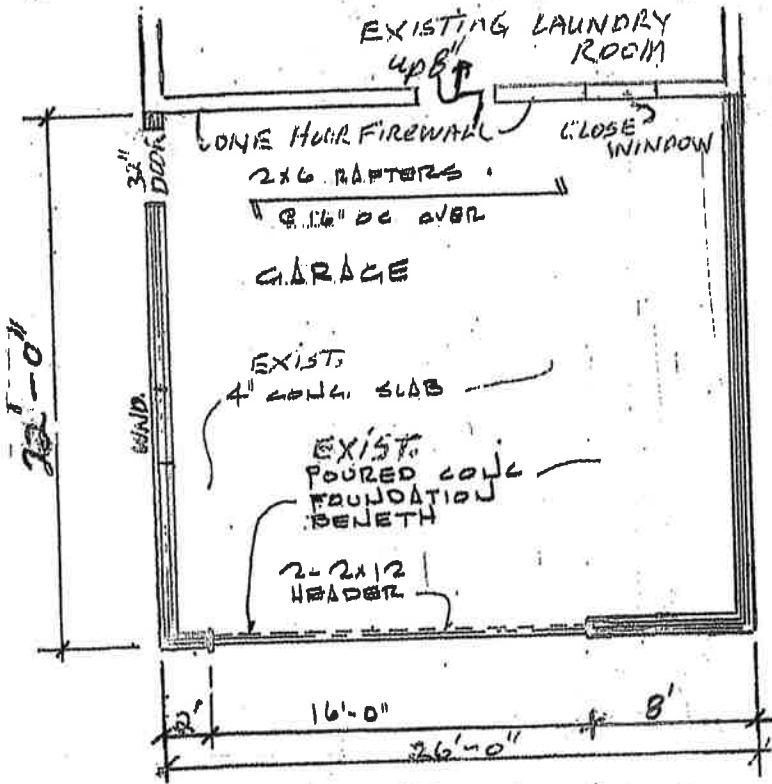 EXISTING LAUNDRY
ROOM
up 8"
ONE HOUR FIREWALL
CLOSE
WINDOW
32"
DOOR
2x6 RAFTERS
@ 16" OC OVER
GARAGE
22'-0"
EXIST.
4" CONC. SLAB
WND.
EXIST.
POURED CONC
FOUNDATION
BENETH
2-2x12
HEADER
2'
16'-0"
8'
26'-0"